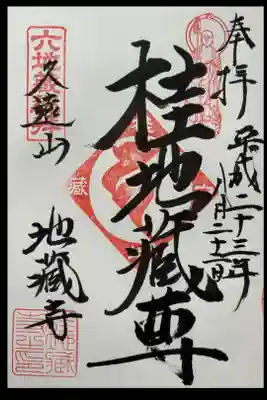 奉拝
平成二十三年
八月二十二日
桂地蔵尊
六地蔵
久遠山
地蔵寺
蔵